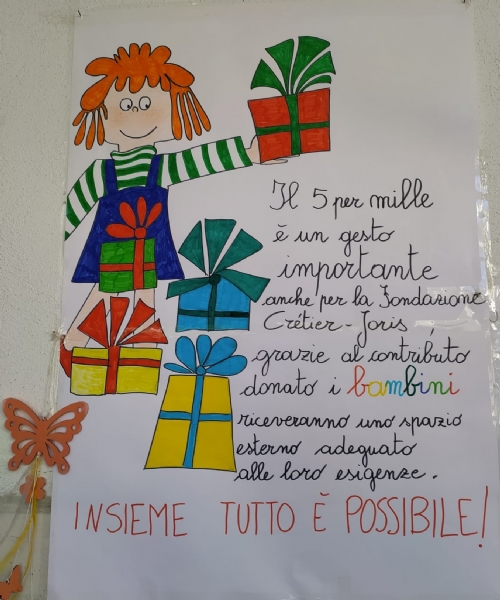 Il 5 per mille
è un gesto
importante
anche per la Fondazione
Crétier - Joris
grazie al contributo
donato i bambini
riceveranno uno spazio
esterno adeguato
alle loro esigenze.
INSIEME TUTTO È POSSIBILE!